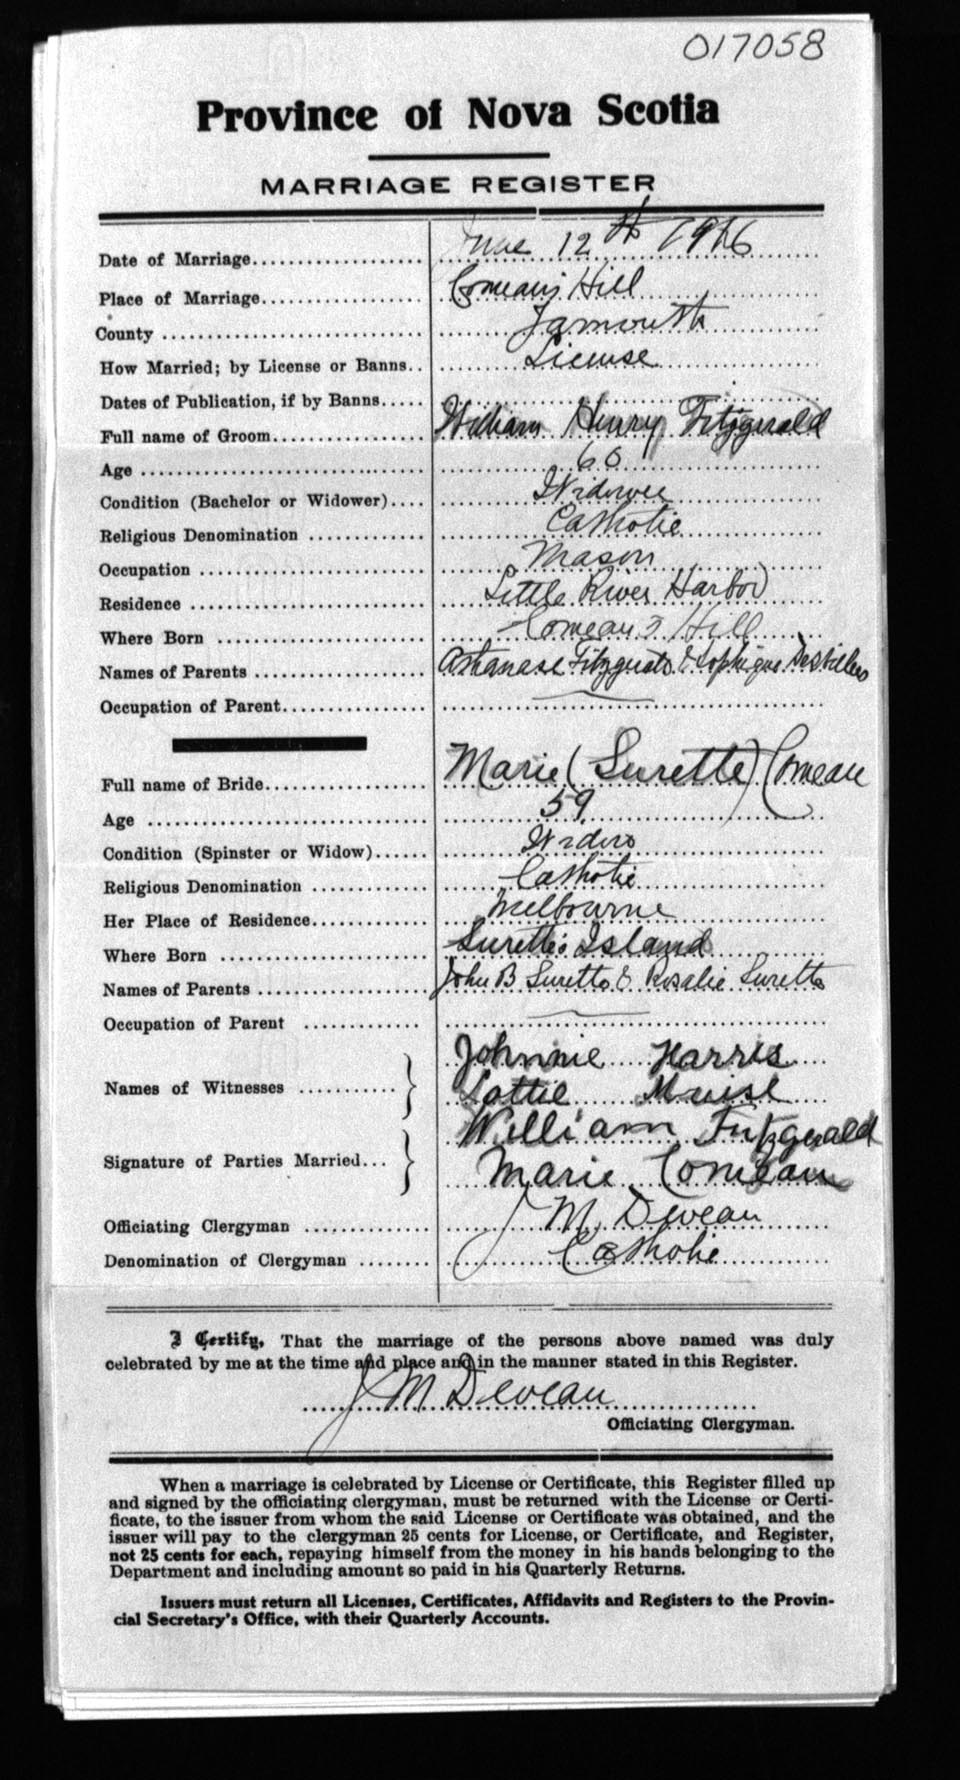 017058
Province of Nova Scotia
MARRIAGE REGISTER
Date of Marriage.................... June 12th 1916
Place of Marriage................... Comeau's Hill
County ........................... Yarmouth
How Married; by License or Banns.. License
Dates of Publication, if by Banns.....
Full name of Groom.................. William Henry Fitzgerald
Age ............................... 60
Condition (Bachelor or Widower).... Widower
Religious Denomination ............. Catholic
Occupation ......................... Mason
Residence .......................... Little River Harbor
Where Born ....................... Comeau's Hill
Names of Parents .................... Athanase Fitzgerald &
Occupation of Parent.................
Full name of Bride................... Marie (Surette) Comeau
Age ................................ 59
Condition (Spinster or Widow)...... Widow
Religious Denomination ............. Catholic
Her Place of Residence.............. Melbourne
Where Born ....................... Surette's Island
Names of Parents ................... John B Surette & Rosalie Surette
Occupation of Parent ..............
Names of Witnesses ........... } Johnnie Harris
Lottie Muise
Signature of Parties Married... } William Fitzgerald
Marie Comeau
Officiating Clergyman .............. J M Deveau
Denomination of Clergyman ........ Catholic
I Certify, That the marriage of the persons above named was duly
celebrated by me at the time and place and in the manner stated in this Register.
J M Deveau
Officiating Clergyman.
When a marriage is celebrated by License or Certificate, this Register filled up
and signed by the officiating clergyman, must be returned with the License or Certi-
ficate, to the issuer from whom the said License or Certificate was obtained, and the
issuer will pay to the clergyman 25 cents for License, or Certificate, and Register,
not 25 cents for each, repaying himself from the money in his hands belonging to the
Department and including amount so paid in his Quarterly Returns.
Issuers must return all Licenses, Certificates, Affidavits and Registers to the Provin-
cial Secretary's Office, with their Quarterly Accounts.